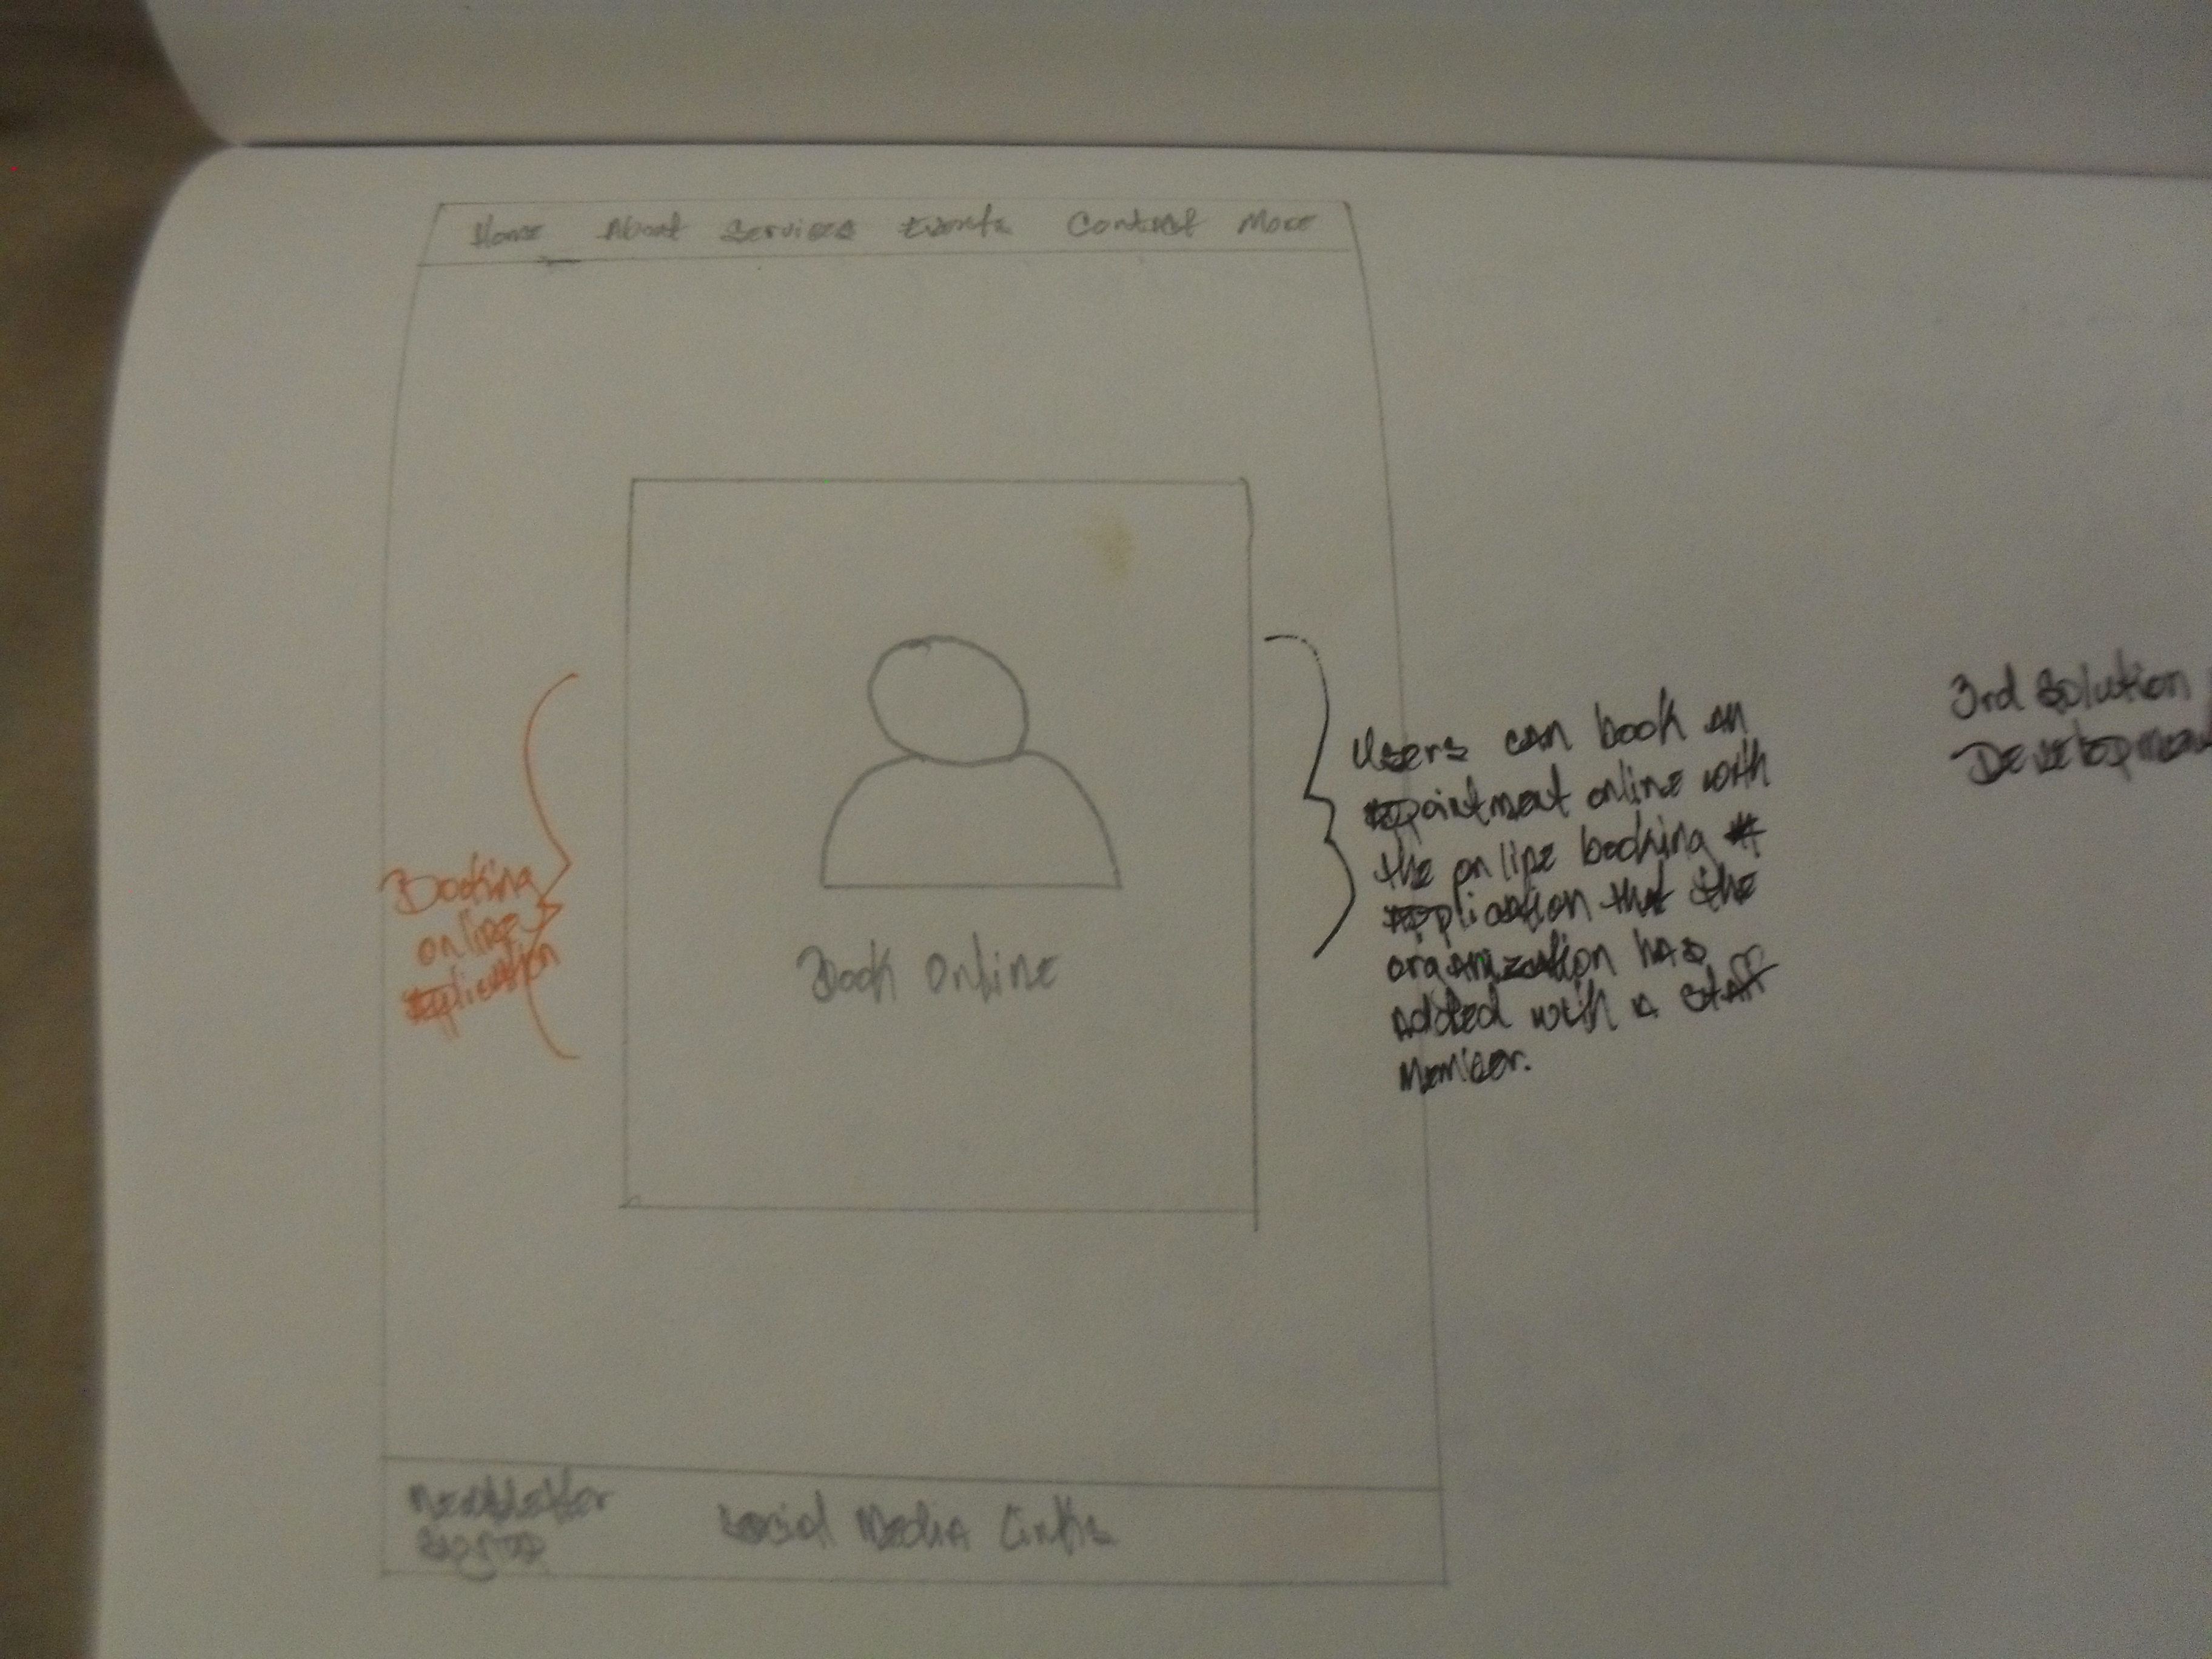 Home About Services Events Contact More
Booking
online
application
Book Online
Users can book an
appointment online with
the online booking
application that the
organization has
added with a staff
member.
3rd Solution
Development
Newsletter
Signup
Social Media Links